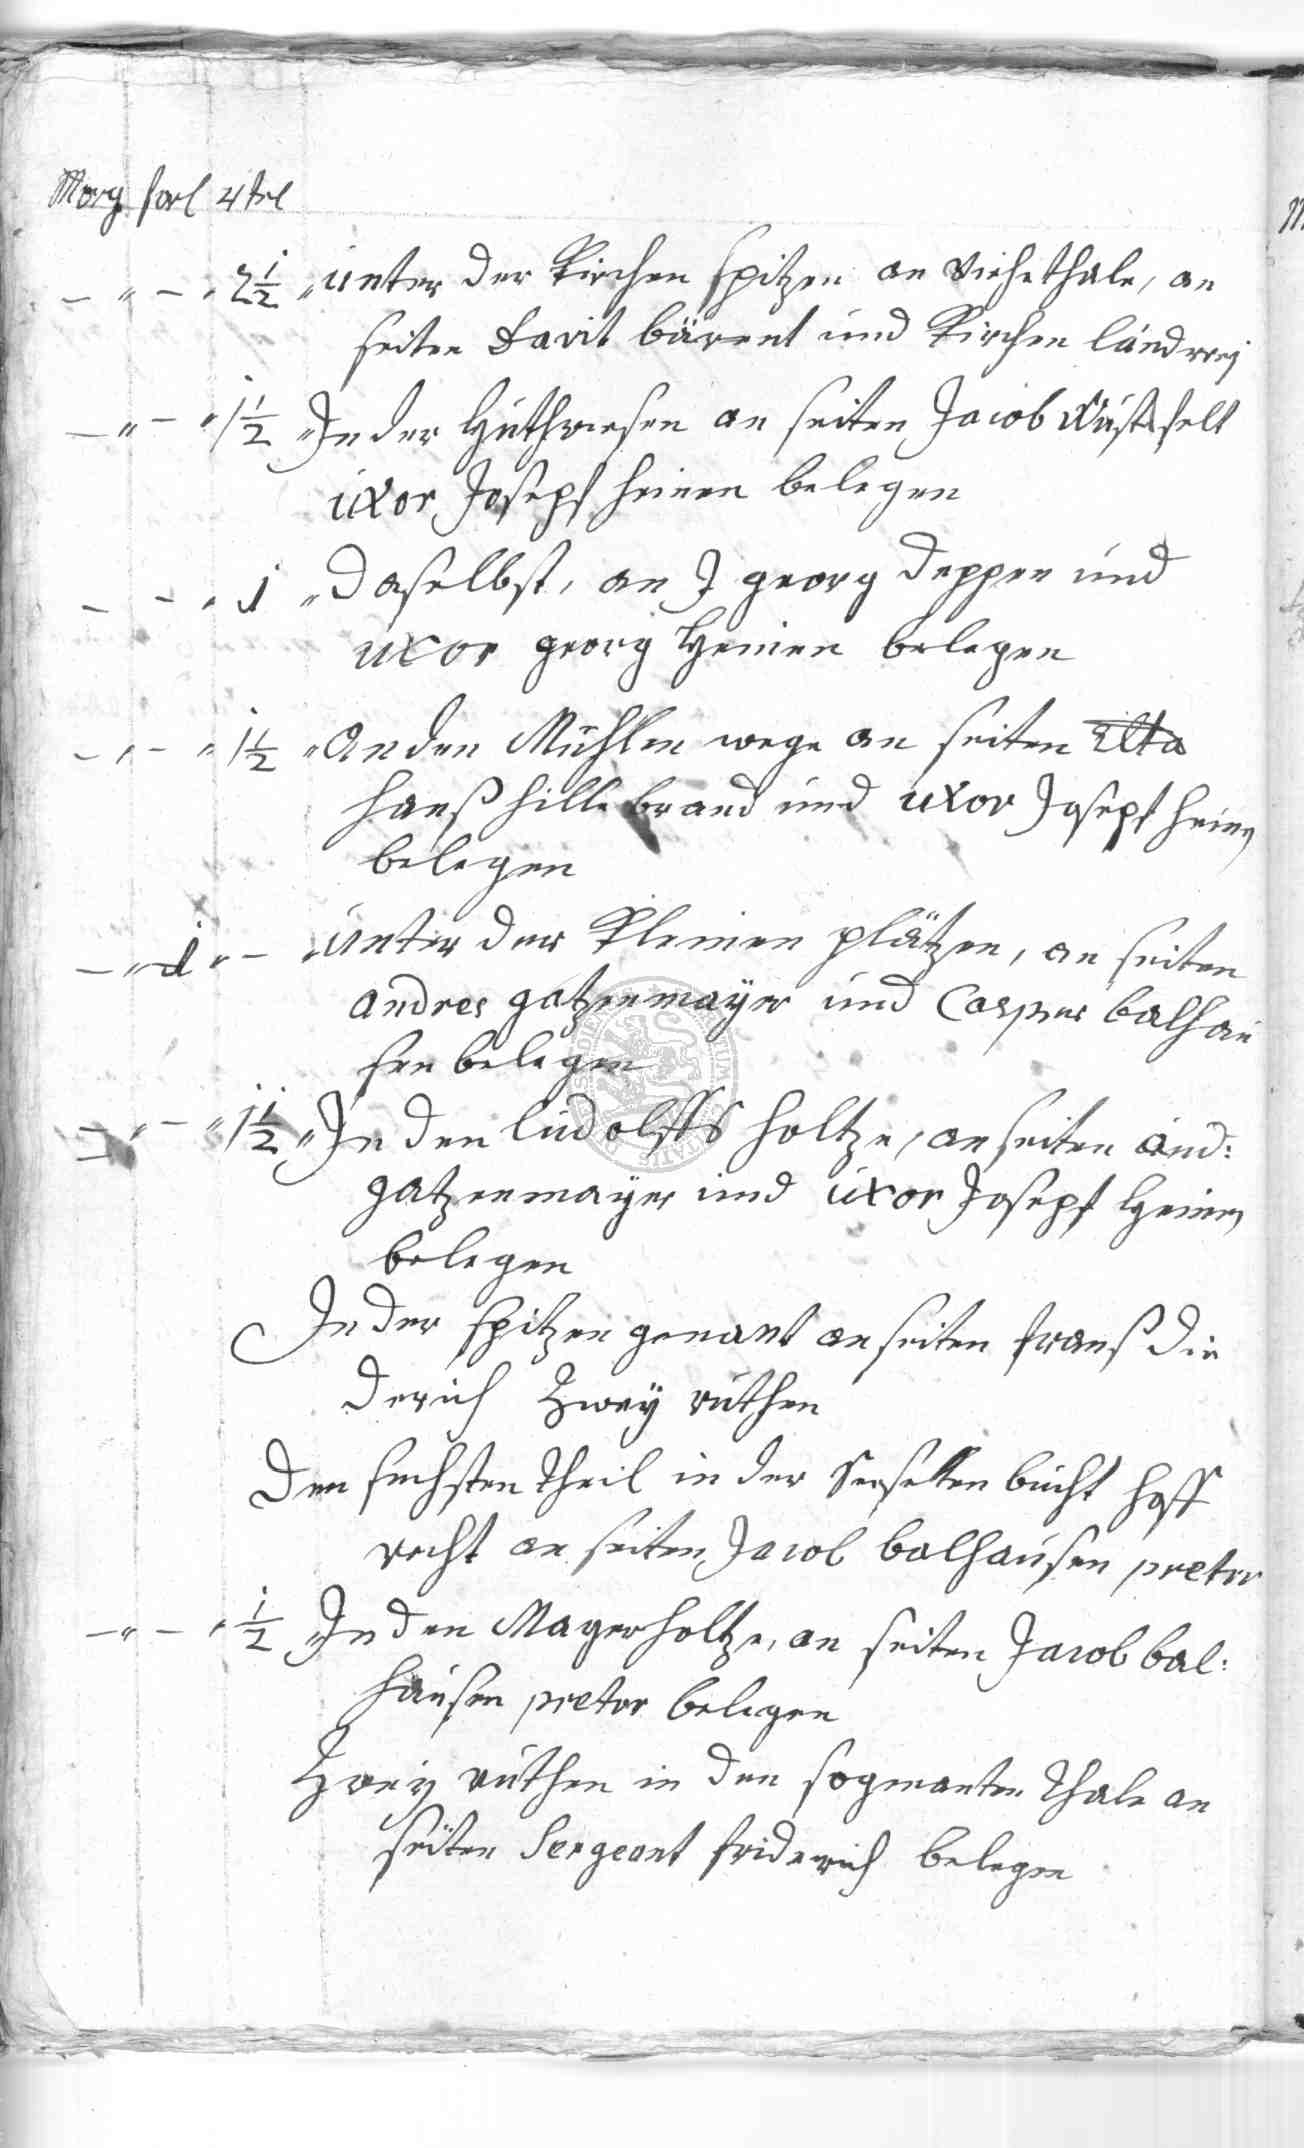 Morg forl 4trl
— „ — „ 2½ „ unter der Kirchen spitzen an Viehethale, an
seiten Davit bärent und Kirchen länderej
— „ — „ 1½ „ In der Huthwesen an seiten Jacob Wüstefelt
uxor Joseph heinen belegen
— — „ 1 „ Daselbst, an J georg deppen und
uxor georg Heinen belegen
— „ — „ 1½ „ An den Mühlen wege an seiten
hanß hillebrand und uxor Joseph heinen
belegen
— „ 1 „ — „ Unter der Kleinen plätzen, an seiten
andres gatzenmaÿer und Casper balhau
sen belegen
— „ — „ 1½ „ In den ludolffs holtze, an seiten and:
gatzenmaÿer und uxor Joseph Heinen
belegen
In der spitzen genant an seiten franß die
derich Zweÿ ruthen
Den sechsten theil in der bucht hoff
recht an seiten Jacob balhausen pretor
— „ — „ ½ „ In den Mayerholtze, an seiten Jacob bal:
hausen pretor belegen
Zweÿ ruthen in den sogenanten thale an
seiten Sergeant friderich belegen